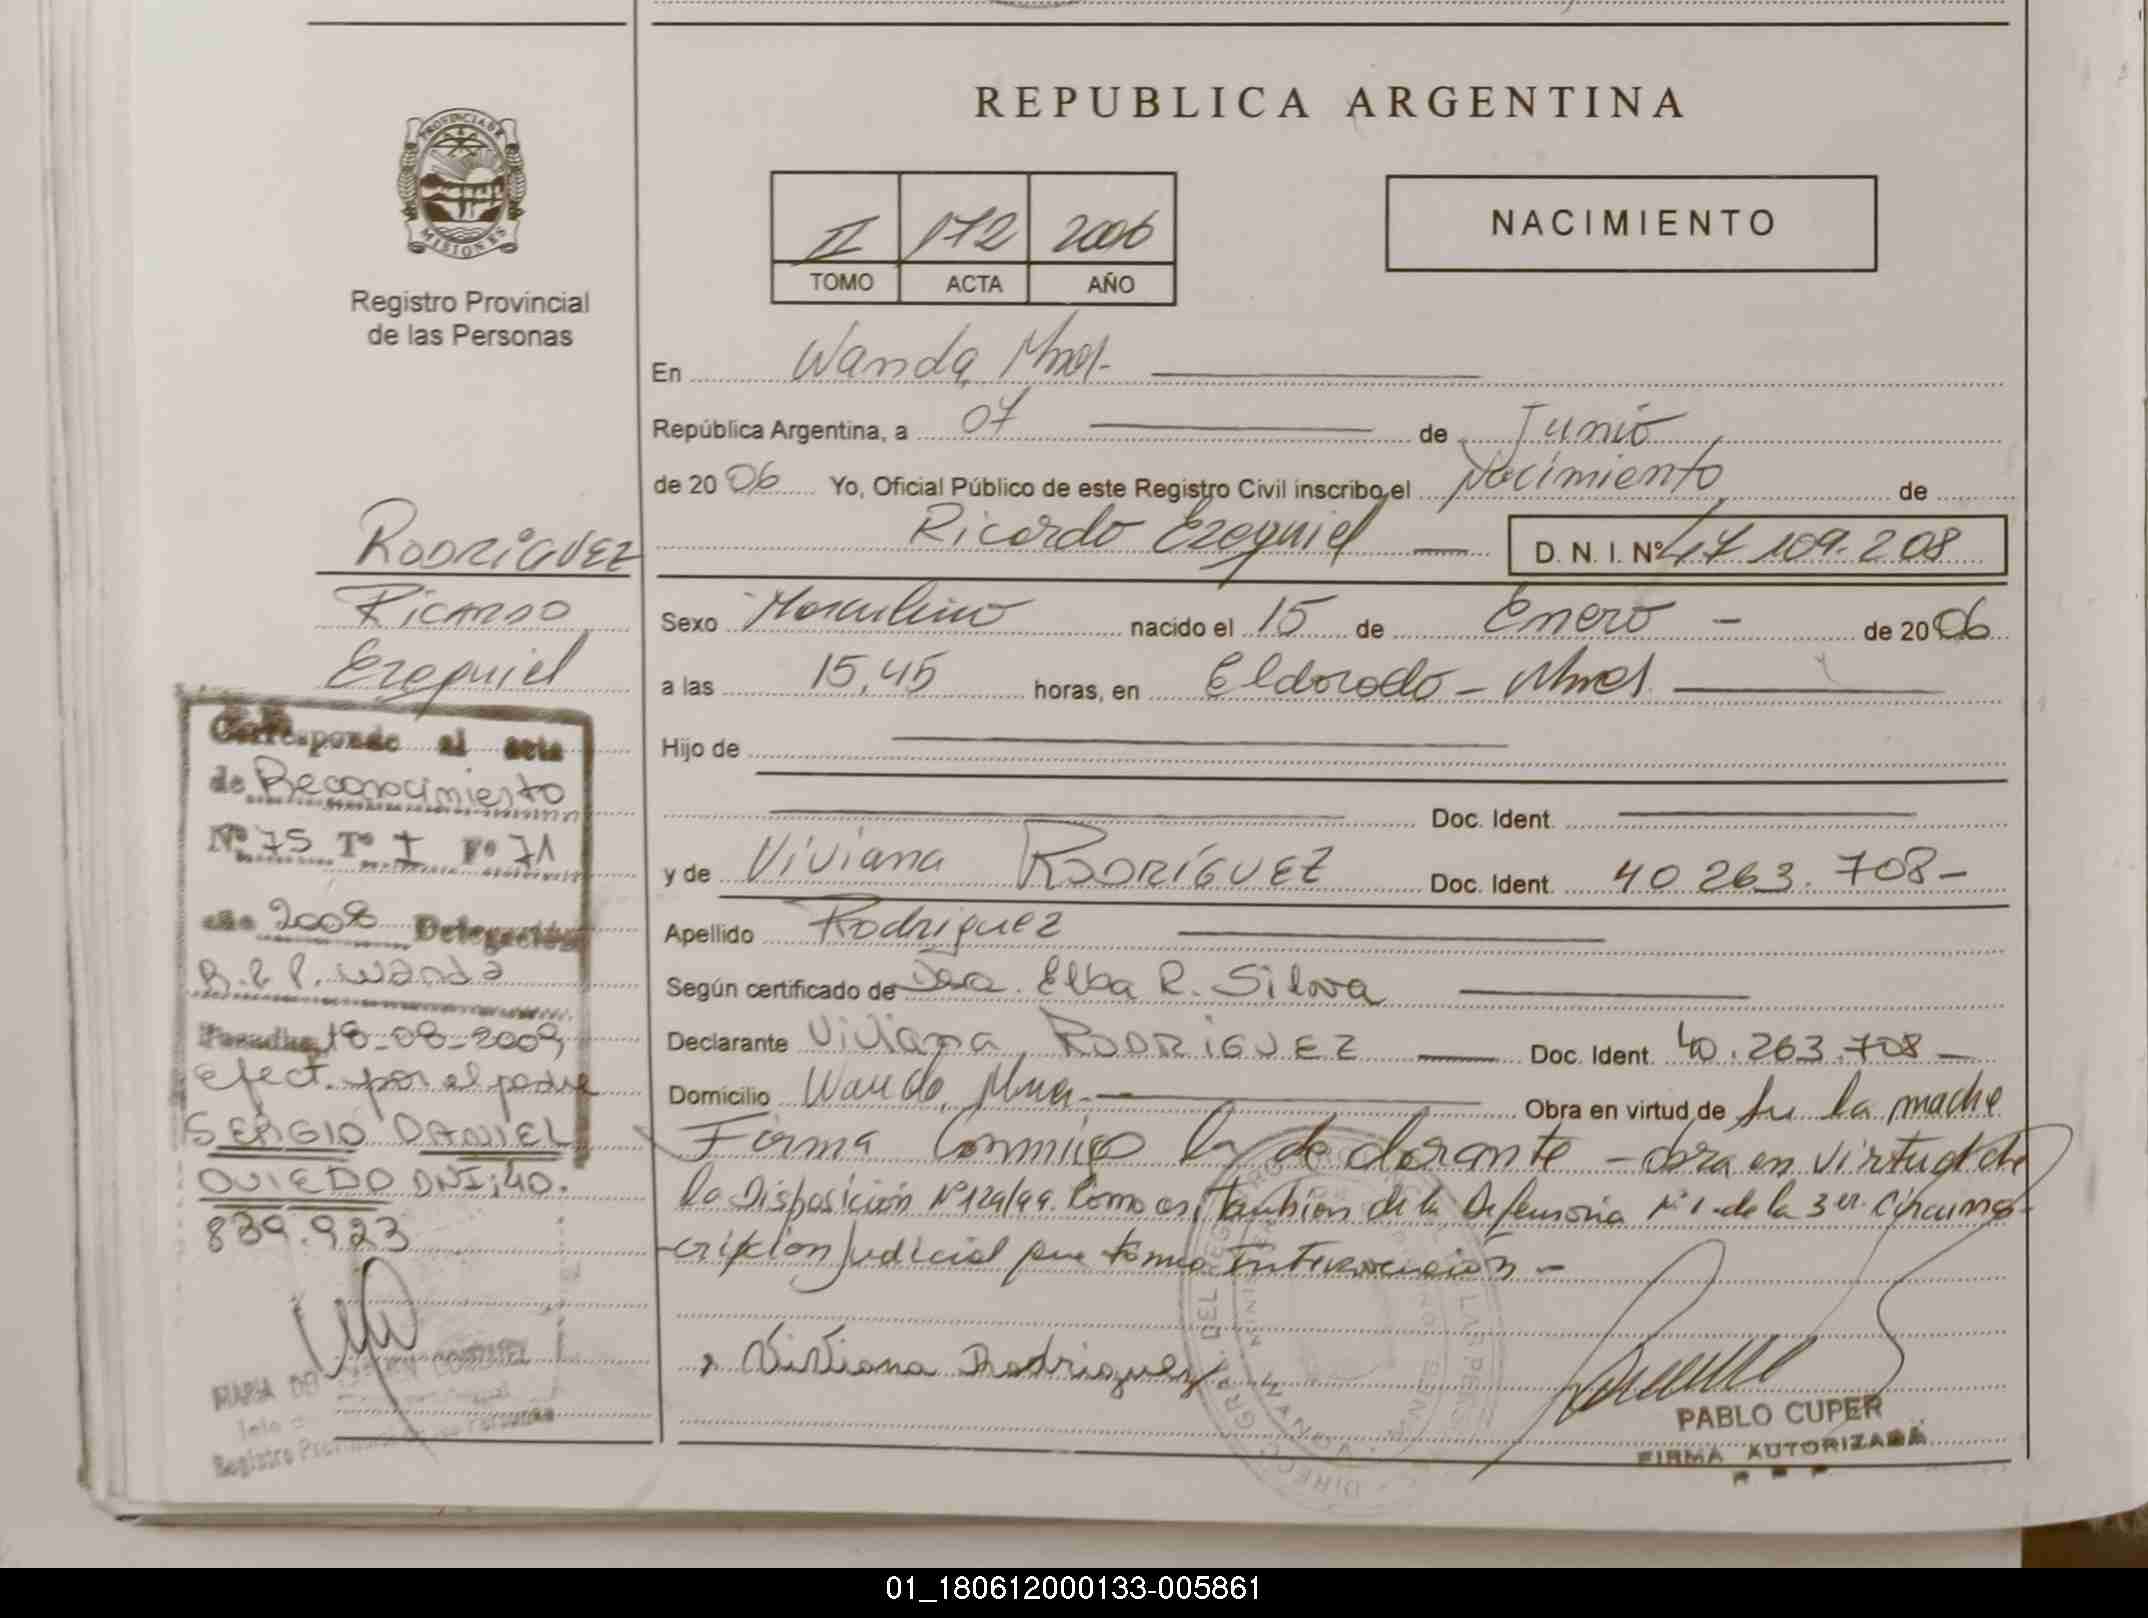 REPUBLICA ARGENTINA
PROVINCIA DE
MISIONES
Registro Provincial
de las Personas
II 172 2006
TOMO ACTA AÑO
NACIMIENTO
En Wanda, Mnes.
República Argentina, a 07 de Junio
de 2006 Yo, Oficial Público de este Registro Civil inscribo el Nacimiento de
Ricardo Ezequiel D. N. I. Nº 47 109.208
Sexo Masculino nacido el 15 de Enero - de 2006
a las 15,45 horas, en Eldorado - Mnes.
Hijo de
Doc. Ident.
y de Viviana RODRÍGUEZ Doc. Ident. 40 263.708-
Apellido Rodriguez
Según certificado de Dra. Elba R. Silva
Declarante Viviana RODRIGUEZ Doc. Ident. 40.263.708
Domicilio Wanda, Mnes. Obra en virtud de ser la madre
Firma Conmigo la declarante - obra en virtud de
la Disposición Nº 124/99. Como así también de la Defensoria Nº 1 de la 3er Circuns-
cripción Judicial que tomo Intervención -
Viviana Rodriguez
PABLO CUPER
FIRMA AUTORIZADA
RODRIGUEZ
RICARDO
Ezequiel
Corresponde al acta
de Reconocimiento
Nº 75 Tº I Fº 71
año 2008 Delegación
R.P. Wanda
Posadas, 18-08-2009
efect. por el padre
SERGIO DANIEL
OVIEDO DNI: 40.
839.923
MARIA DEL CARMEN GONZALEZ
Registro Provincial de las Personas
01_180612000133-005861